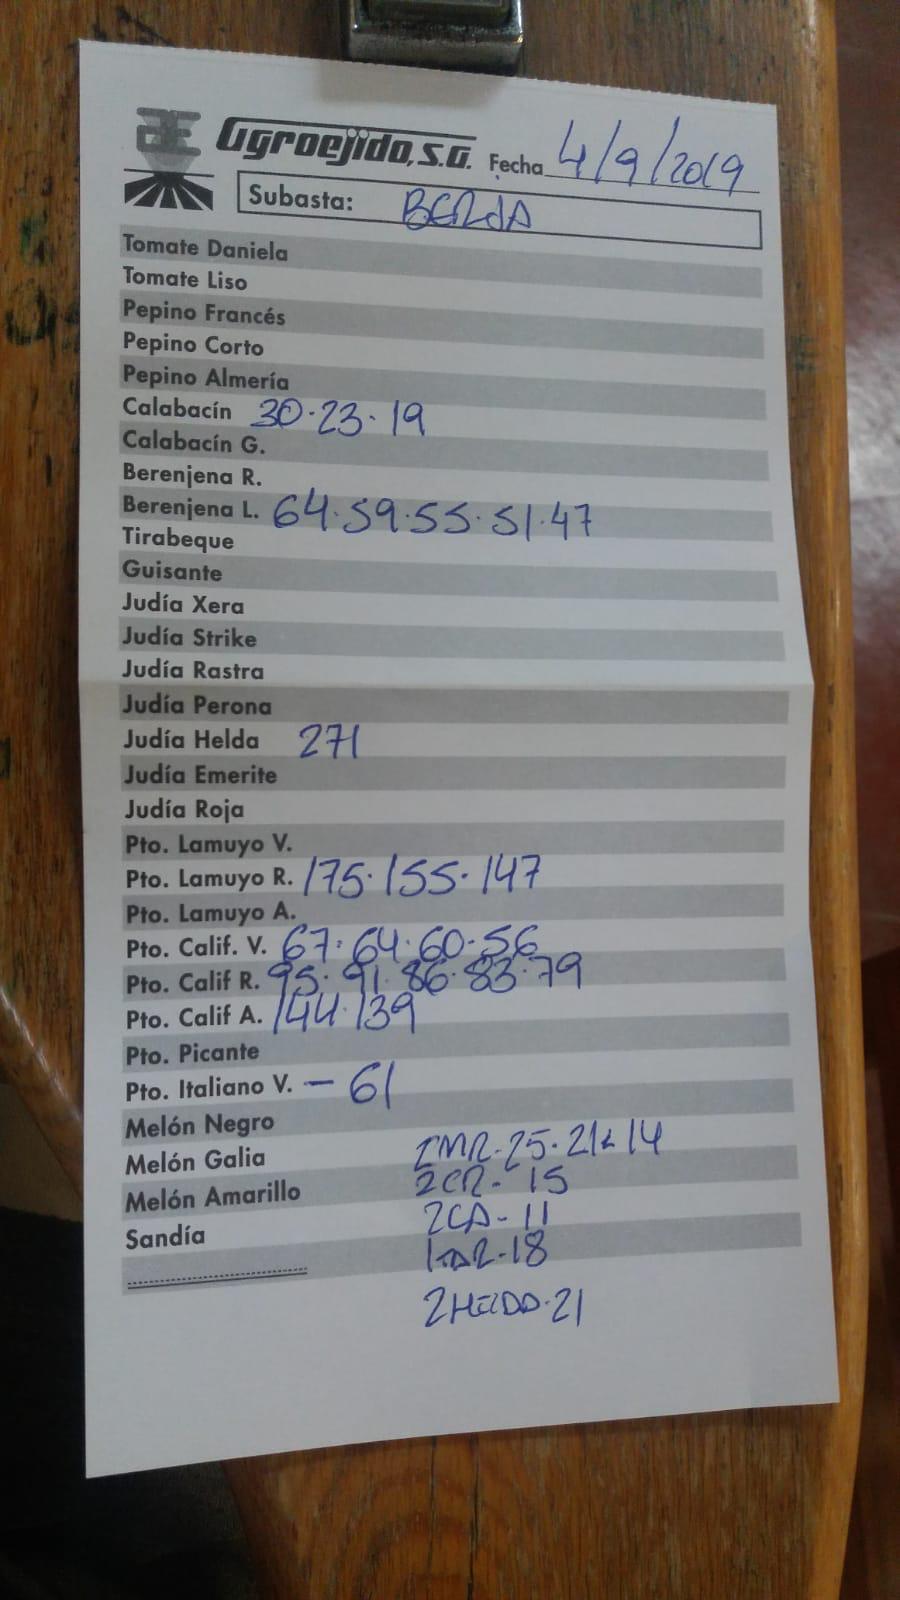 AE Agroejido, S.A. Fecha 4/9/2019
Subasta: BERJA
Tomate Daniela
Tomate Liso
Pepino Francés
Pepino Corto
Pepino Almería
Calabacín 30·23·19
Calabacín G.
Berenjena R.
Berenjena L. 64·59·55·51·47
Tirabeque
Guisante
Judía Xera
Judía Strike
Judía Rastra
Judía Perona
Judía Helda 271
Judía Emerite
Judía Roja
Pto. Lamuyo V.
Pto. Lamuyo R. 175·155·147
Pto. Lamuyo A.
Pto. Calif. V. 67·64·60·56
Pto. Calif R. 95·91·86·83·79
Pto. Calif A. 144·139
Pto. Picante
Pto. Italiano V. - 61
Melón Negro
Melón Galia 25·21 14
Melón Amarillo 2CR- 15
2CA- 11
Sandía
18
21